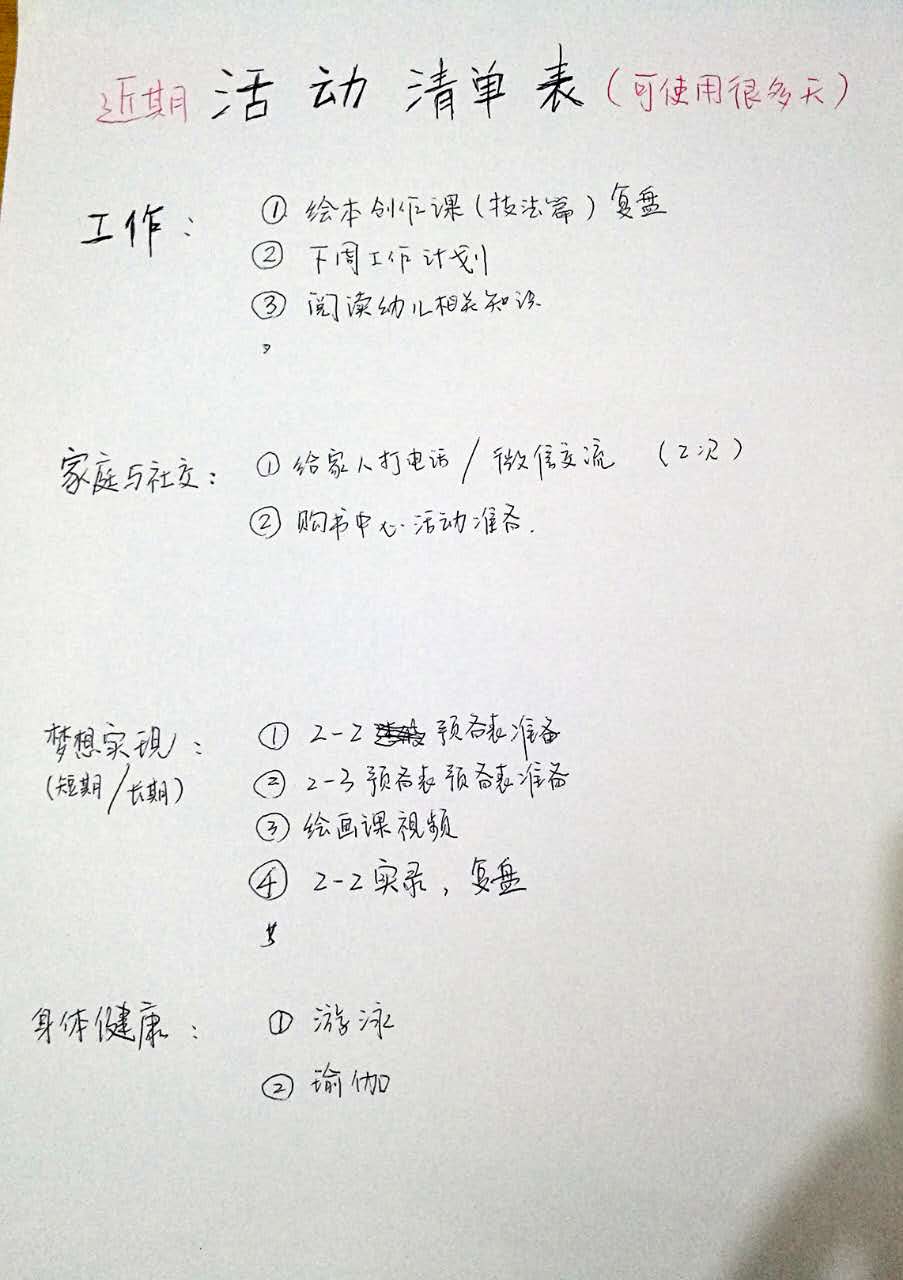 近期 活动清单表(可使用很多天)
工作: ① 绘本创作课(技法篇)复盘
② 下周工作计划
③ 阅读幼儿相关知识
家庭与社交: ① 给家人打电话/微信交流 (2次)
② 购书中心活动准备.
梦想实现: ① 2-2 预备表准备
(短期/长期) ② 2-3预备表预备表准备
③ 绘画课视频
④ 2-2实录,复盘
身体健康: ① 游泳
② 瑜伽